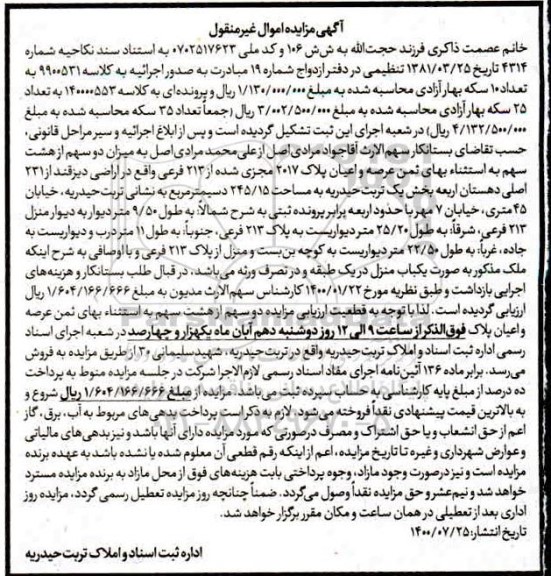 آگهی مزایده اموال غیر منقول
خانم عصمت ذاکری فرزند حجت‌الله به ش ش ۱۰۶ و کد ملی ۰۷۰۲۵۱۷۶۲۳ به استناد سند نکاحیه شماره
۴۳۱۴ تاریخ ۱۳۸۱/۰۳/۲۵ تنظیمی در دفتر ازدواج شماره ۱۹ مبادرت به صدور اجرائیه به کلاسه ۹۹۰۰۵۳۱ به
تعداد ۱۰ سکه بهار آزادی محاسبه شده به مبلغ ۱/۱۳۰/۰۰۰/۰۰۰ ریال و پرونده‌ای به کلاسه ۱۴۰۰۰۰۵۵۳ به تعداد
۲۵ سکه بهار آزادی محاسبه شده به مبلغ ۳/۰۰۲/۵۰۰/۰۰۰ ریال (جمعاً تعداد ۳۵ سکه محاسبه شده به مبلغ
۴/۱۳۲/۵۰۰/۰۰۰ ریال) در شعبه اجرای این ثبت تشکیل گردیده است و پس از ابلاغ اجرائیه و سیر مراحل قانونی،
حسب تقاضای بستانکار سهم الارث آقاجواد مرادی اصل از علی محمد مرادی اصل به میزان دو سهم از هشت
سهم به استثناء بهای ثمن عرصه و اعیان پلاک ۲۰۱۷ مجزی شده از ۲۱۳ فرعی واقع در اراضی دیزقند از ۲۳۱
اصلی دهستان اربعه بخش یک تربت حیدریه به مساحت ۲۴۵/۱۵ دسیمتر مربع به نشانی تربت حیدریه، خیابان
۴۵ متری، خیابان ۷ مهر با حدود اربعه برابر پرونده ثبتی به شرح شمالاً: به طول ۹/۵۰ متر دیوار به دیوار منزل
۲۱۳ فرعی، شرقاً: به طول ۲۵/۲۰ متر دیواریست به پلاک ۲۱۳ فرعی، جنوباً: به طول ۱۱ متر درب و دیواریست به
جاده، غرباً: به طول ۲۲/۵۰ متر دیواریست به کوچه بن‌بست و منزل از پلاک ۲۱۳ فرعی و با اوصافی به شرح اینکه
ملک مذکور به صورت یکباب منزل در یک طبقه و در تصرف ورثه می‌باشد، در قبال طلب بستانکار و هزینه‌های
اجرایی بازداشت و طبق نظریه مورخ ۱۴۰۰/۰۱/۲۲ کارشناس سهم الارث مدیون به مبلغ ۱/۶۰۴/۱۶۶/۶۶۶ ریال
ارزیابی گردیده است. لذا با توجه به قطعیت ارزیابی مزایده دو سهم از هشت سهم به استثناء بهای ثمن عرصه
و اعیان پلاک فوق‌الذکر از ساعت ۹ الی ۱۲ روز دوشنبه دهم آبان ماه یکهزار و چهارصد در شعبه اجرای اسناد
رسمی اداره ثبت اسناد و املاک تربت حیدریه واقع در تربت حیدریه، شهید سلیمانی ۳۰ از طریق مزایده به فروش
می‌رسد. برابر ماده ۱۳۶ آئین‌نامه اجرای مفاد اسناد رسمی لازم الاجرا شرکت در جلسه مزایده منوط به پرداخت
ده درصد از مبلغ پایه کارشناسی به حساب سپرده ثبت می‌باشد. مزایده از مبلغ ۱/۶۰۴/۱۶۶/۶۶۶ ریال شروع و
به بالاترین قیمت پیشنهادی نقداً فروخته می‌شود. لازم به ذکر است پرداخت بدهی‌های مربوط به آب، برق، گاز
اعم از حق انشعاب و یا حق اشتراک و مصرف در صورتی که مورد مزایده دارای آنها باشد و نیز بدهی‌های مالیاتی
و عوارض شهرداری و غیره تا تاریخ مزایده، اعم از اینکه رقم قطعی آن معلوم شده یا نشده باشد به عهده برنده
مزایده است و نیز در صورت وجود مازاد، وجوه پرداختی بابت هزینه‌های فوق از محل مازاد به برنده مزایده مسترد
خواهد شد و نیم‌عشر و حق مزایده نقداً وصول می‌گردد. ضمناً چنانچه روز مزایده تعطیل رسمی گردد، مزایده روز
اداری بعد از تعطیلی در همان ساعت و مکان مقرر برگزار خواهد شد.
تاریخ انتشار: ۱۴۰۰/۰۷/۲۵
اداره ثبت اسناد و املاک تربت حیدریه